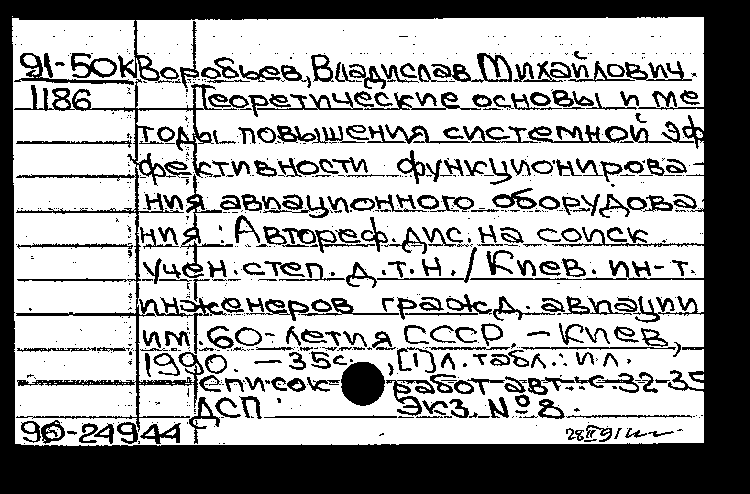 91-50К Воробьев, Владислав Михайлович.
1186 Теоретические основы и ме
тоды повышения системной эф
фективности функционирова-
ния авиационного оборудова
ния : Автореф. дис. на соиск.
учен. степ. д.т.н. / Киев. ин-т.
инженеров гражд. авиации
им. 60-летия СССР. – Киев,
1990. – 35с. , [1] л. табл. : ил.
Список работ авт.: с. 32-35
ДСП Экз. № 8.
90-24944 28 II 91